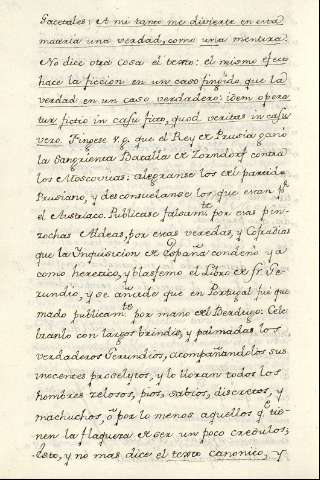 Sacetales; A mi tanto me divierte en esta
materia una verdad, como una mentira.
No dice otra cosa el texto: el mismo efecto
hace la ficcion en un caso fingido que la
verdad en un caso verdadero: idem opera
tur fictio in casu ficto, quod veritas in casu
vero. Fingese v.g. que el Rey de Prusia ganó
la sangrienta Batalla de Zorndorf contra
los Moscovitas: alegranse los del partido
Prusiano, y desconsuelanse los que eran pr
el Austriaco. Publicase falsamte por esas pin-
zochas Aldeas, por esas veredas, y Cofradias
que la Ynquisicion de España condenó ya
como heretico, y blasfemo el Libro de fr. Ge-
rundio, y se añede que en Portugal fue que
mado publicamte por mano del Berdugo: Cele
branlo con largos brindis, y palmadas los
verdaderos Gerundios, acompañandolos sus
inocentes proselytos, y le lloran todos los
hombres zelosos, pios, sabios, discretos, y
machuchos, ó por lo menos aquellos qe tie-
nen la flaqueza de ser un poco credulos;
Esto, y no mas dice el texto canonico, y